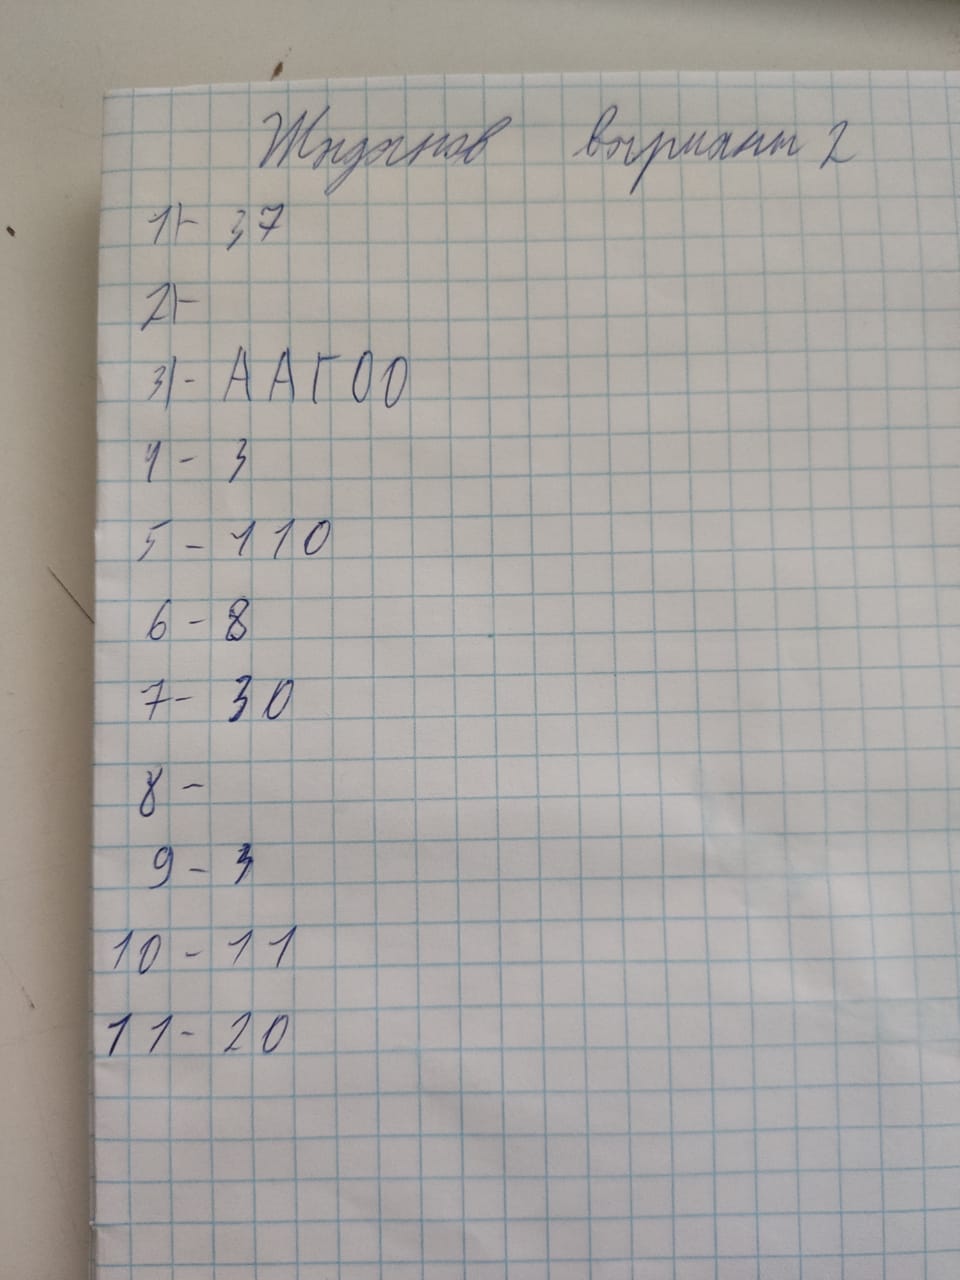 Жданов вариант 2
1)- 37
2)-
3)- ААГОО
4 - 3
5 - 110
6 - 8
7 - 30
8 -
9 - 3
10 - 11
11 - 20